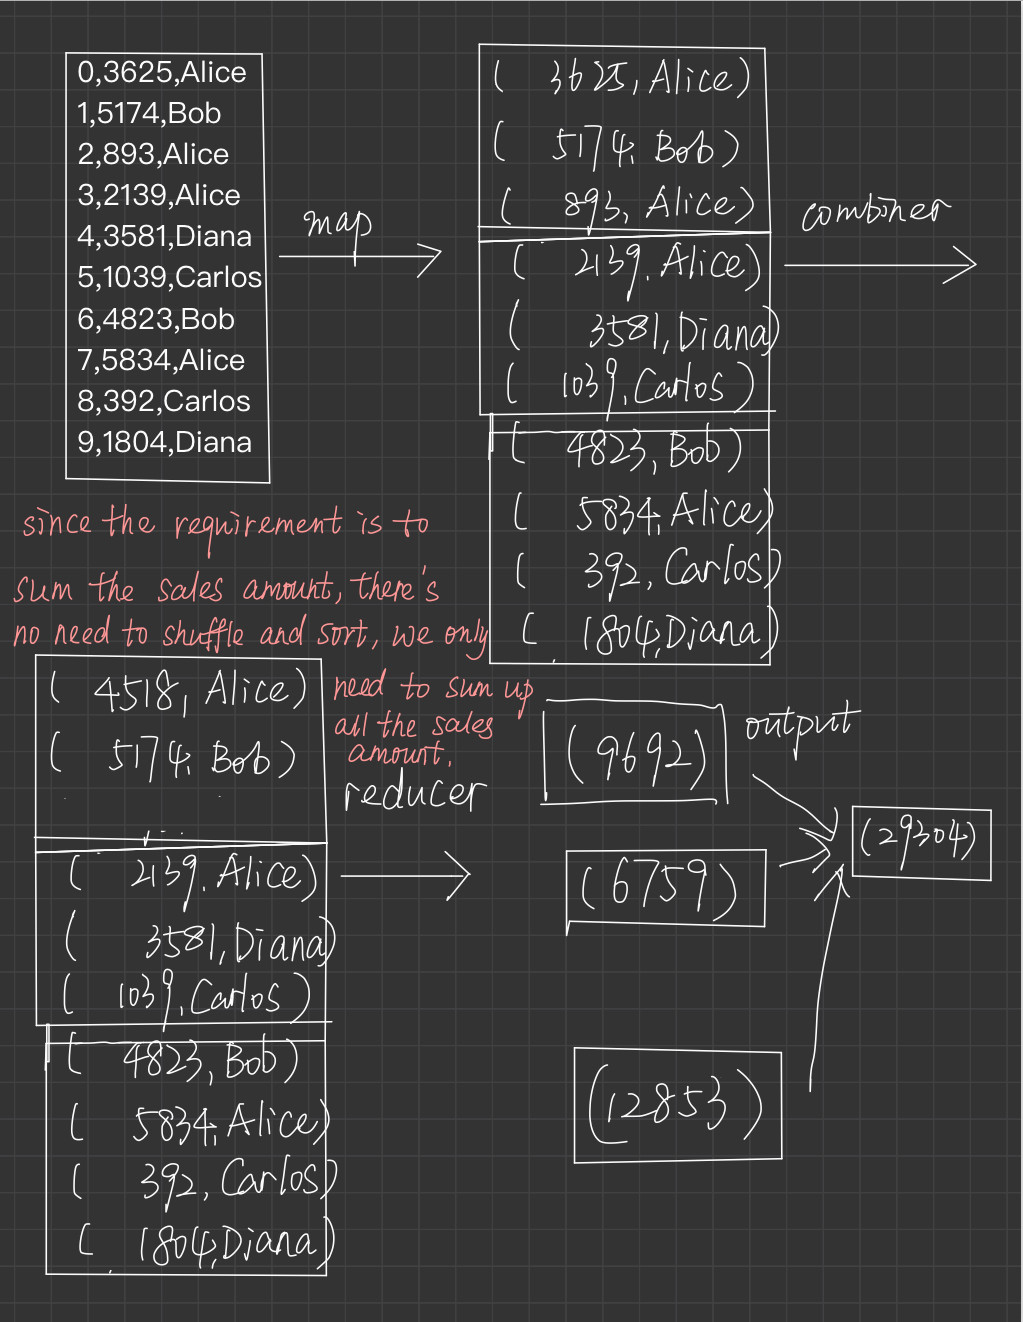 0,3625,Alice
1,5174,Bob
2,893,Alice
3,2139,Alice
4,3581,Diana
5,1039,Carlos
6,4823,Bob
7,5834,Alice
8,392,Carlos
9,1804,Diana
map
( 3625, Alice)
( 5174, Bob)
( 893, Alice)
( 2139, Alice)
( 3581, Diana)
( 1039, Carlos)
( 4823, Bob)
( 5834, Alice)
( 392, Carlos)
( 1804, Diana)
combiner
since the requirement is to
sum the sales amount, there's
no need to shuffle and sort, we only
need to sum up
all the sales
amount.
( 4518, Alice)
( 5174, Bob)
( 2139, Alice)
( 3581, Diana)
( 1039, Carlos)
( 4823, Bob)
( 5834, Alice)
( 392, Carlos)
( 1804, Diana)
reducer
(9692)
(6759)
(12853)
output
(29304)